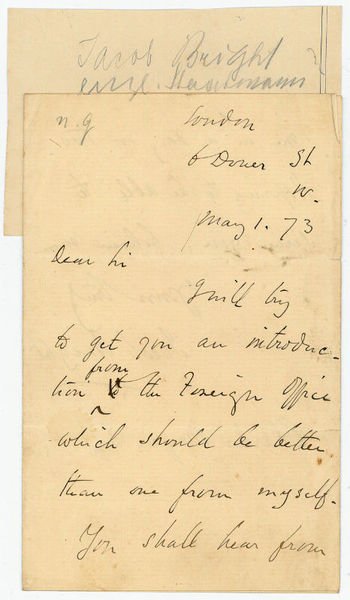 Jacob Bright
Engl. Staatsmann
n.g
London
6 Dover St
W.
May 1. 73
Dear Sir
I will try
to get you an introduc-
from
tion to the Foreign Office
which should be better
than one from myself.
You shall hear from